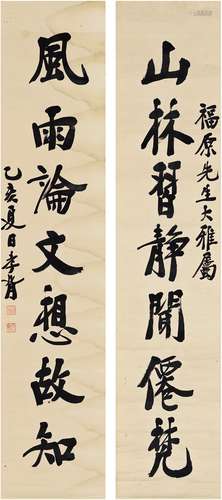 山林習靜聞僊梵
福原先生大雅屬
風雨論文想故知
乙亥夏日李